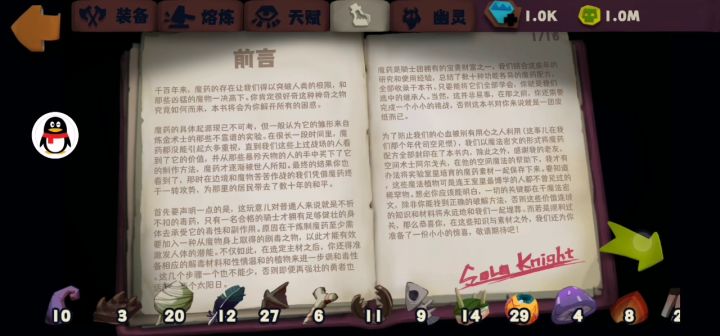 装备
熔炼
天赋
幽灵
1.0K
1.0M
前言
千百年来，魔药的存在让我们得以突破人类的极限，和
那些凶猛的魔物一决高下。你肯定很好奇这种神奇之物
究竟如何而来，本书将会为你解开所有的困惑。
魔药的具体起源现已不可考，但一般认为它的雏形来自
炼金术士的那些不靠谱的实验。在很长一段时间里，魔
药都没能引起大多重视，直到我们这些上过战场的人看
到了它的价值，并从那些暴殄天物的人的手中买下了它
的制作方法，魔药才逐渐被世人所知。最终的结果你也
看到了，那时在边境和魔物苦苦作战的我们凭借魔药终
于一转攻势，为那里的居民带去了数十年的和平。
首先要声明一点的是，这玩意儿对普通人来说就是不折
不扣的毒药，只有一名合格的骑士才拥有足够健壮的身
体去承受它的毒性和副作用。原因在于炼制魔药至少需
要加入一种从魔物身上取得的剧毒之物，以此才能有效
激发人体的潜能。不仅如此，在选定主材之后，你还得准
备相应的解毒材料和性情温和的植物来进一步调和毒性
。这几个步骤一个也不能少，否则即便再强壮的勇者也
个太阳日。
1/16
魔药是骑士团拥有的宝贵财富之一，我们结合这些年的
研究和使用经验，总结了数十种功能各异的魔药配方，
全部收录于本书。只要能将它们全部学会，你就是我们
选中的继承人。当然，这并非易事，在那之前，你还需要
完成一个小小的挑战，否则这本书对你来说就是一团废
纸而已。
为了防止我们的心血被别有用心之人利用（这事儿在我
们那个年代司空见惯），我们以魔法密文的形式将魔药
配方全部封印在了本书内。除此之外，感谢我的老友，
空间术士阿尔戈夫，在他的空间魔法的帮助下，我才有
办法将实验室里培育的魔药素材一起保存下来。要知道
，这些魔法植物可是连王室里最博学的人都不曾见过的
稀罕物。想必你应该能明白，一切的关键都在于魔法密
文。除非你能找到正确的破解方法，否则这些价值连城
的知识和材料将永远地和我们一起埋葬。而若是顺利过
关，那么恭喜你，在这些知识与素材之外，我们还为你
准备了一份小小的惊喜，敬请期待吧！
Soul Knight
10
3
20
12
27
6
11
9
14
29
4
8